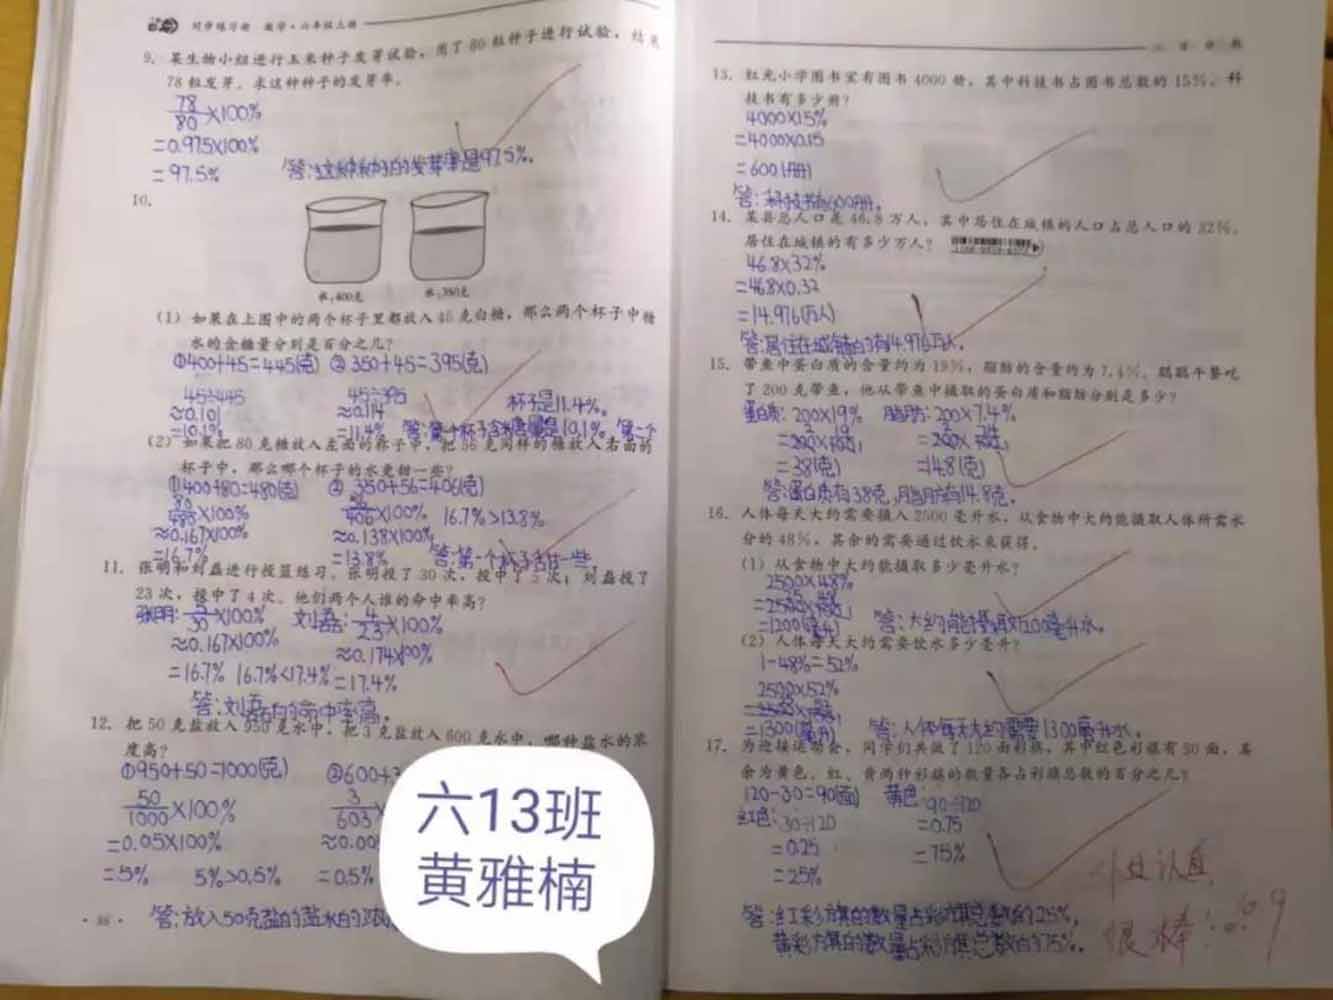 同步练习册·数学·六年级上册
9. 某生物小组进行玉米种子发芽试验，用了80粒种子进行试验，结果
78粒发芽。求这种种子的发芽率。
78/80×100%
=0.975×100%
=97.5%
答:这种种子的发芽率是97.5%。
10.
水:400克
水:350克
(1) 如果在上图中的两个杯子里都放入45克白糖，那么两个杯子中糖
水的含糖量分别是百分之几？
①400+45=445(克) ②350+45=395(克)
45÷445
≈0.101
=10.1%
45÷395
≈0.114
=11.4%
杯子是11.4%。
答:第一个杯子含糖量是10.1%。第二个
(2) 如果把80克糖放入左面的杯子中，把56克同样的糖放入右面的
杯子中，那么哪个杯子的水更甜一些？
①400+80=480(克) ② 350+56=406(克)
80/480×100%
≈0.167×100%
=16.7%
56/406×100%
≈0.138×100%
=13.8%
16.7%>13.8%
答:第一个杯子甜一些。
11. 张明和刘磊进行投篮练习。张明投了30次，投中了5次；刘磊投了
23次，投中了4次。他们两个人谁的命中率高？
张明: 5/30×100%
≈0.167×100%
=16.7%
刘磊: 4/23×100%
≈0.174×100%
=17.4%
16.7%<17.4%
答:刘磊的命中率高。
12. 把50克盐放入950克水中，把3克盐放入600克水中，哪种盐水的浓
度高？
①950+50=1000(克)
50/1000×100%
=0.05×100%
=5%
②600+3
3/603×
≈0.00
=0.5%
5%>0.5%
答:放入50克盐的盐水的浓
六13班
黄雅楠
13. 红光小学图书室有图书4000册，其中科技书占图书总数的15%。科
技书有多少册？
4000×15%
=4000×0.15
=600(册)
答:科技书有600册。
14. 某县总人口是46.8万人，其中居住在城镇的人口占总人口的32%。
居住在城镇的有多少万人？
46.8×32%
=46.8×0.32
=14.976(万人)
答:居住在城镇的有14.976万人。
15. 带鱼中蛋白质的含量约为19%，脂肪的含量约为7.4%。聪聪午餐吃
了200克带鱼，他从带鱼中摄取的蛋白质和脂肪分别是多少？
蛋白质: 200×19%
=38(克)
脂肪: 200×7.4%
=14.8(克)
答:蛋白质有38克,脂肪有14.8克。
16. 人体每天大约需要摄入2500毫升水，从食物中大约能摄取人体所需水
分的48%，其余的需要通过饮水来获得。
(1) 从食物中大约能摄取多少毫升水？
2500×48%
=1200(毫升)
答:大约能摄取1200毫升水。
(2) 人体每天大约需要饮水多少毫升？
1-48%=52%
2500×52%
=1300(毫升)
答:人体每天大约需要1300毫升水。
17. 为迎接运动会，同学们共做了120面彩旗，其中红色彩旗有30面，其
余为黄色。红、黄两种彩旗的数量各占彩旗总数的百分之几？
120-30=90(面)
红色: 30÷120
=0.25
=25%
黄色: 90÷120
=0.75
=75%
答:红彩旗的数量占彩旗总数的25%,
黄彩旗的数量占彩旗总数的75%。
认真
很棒!